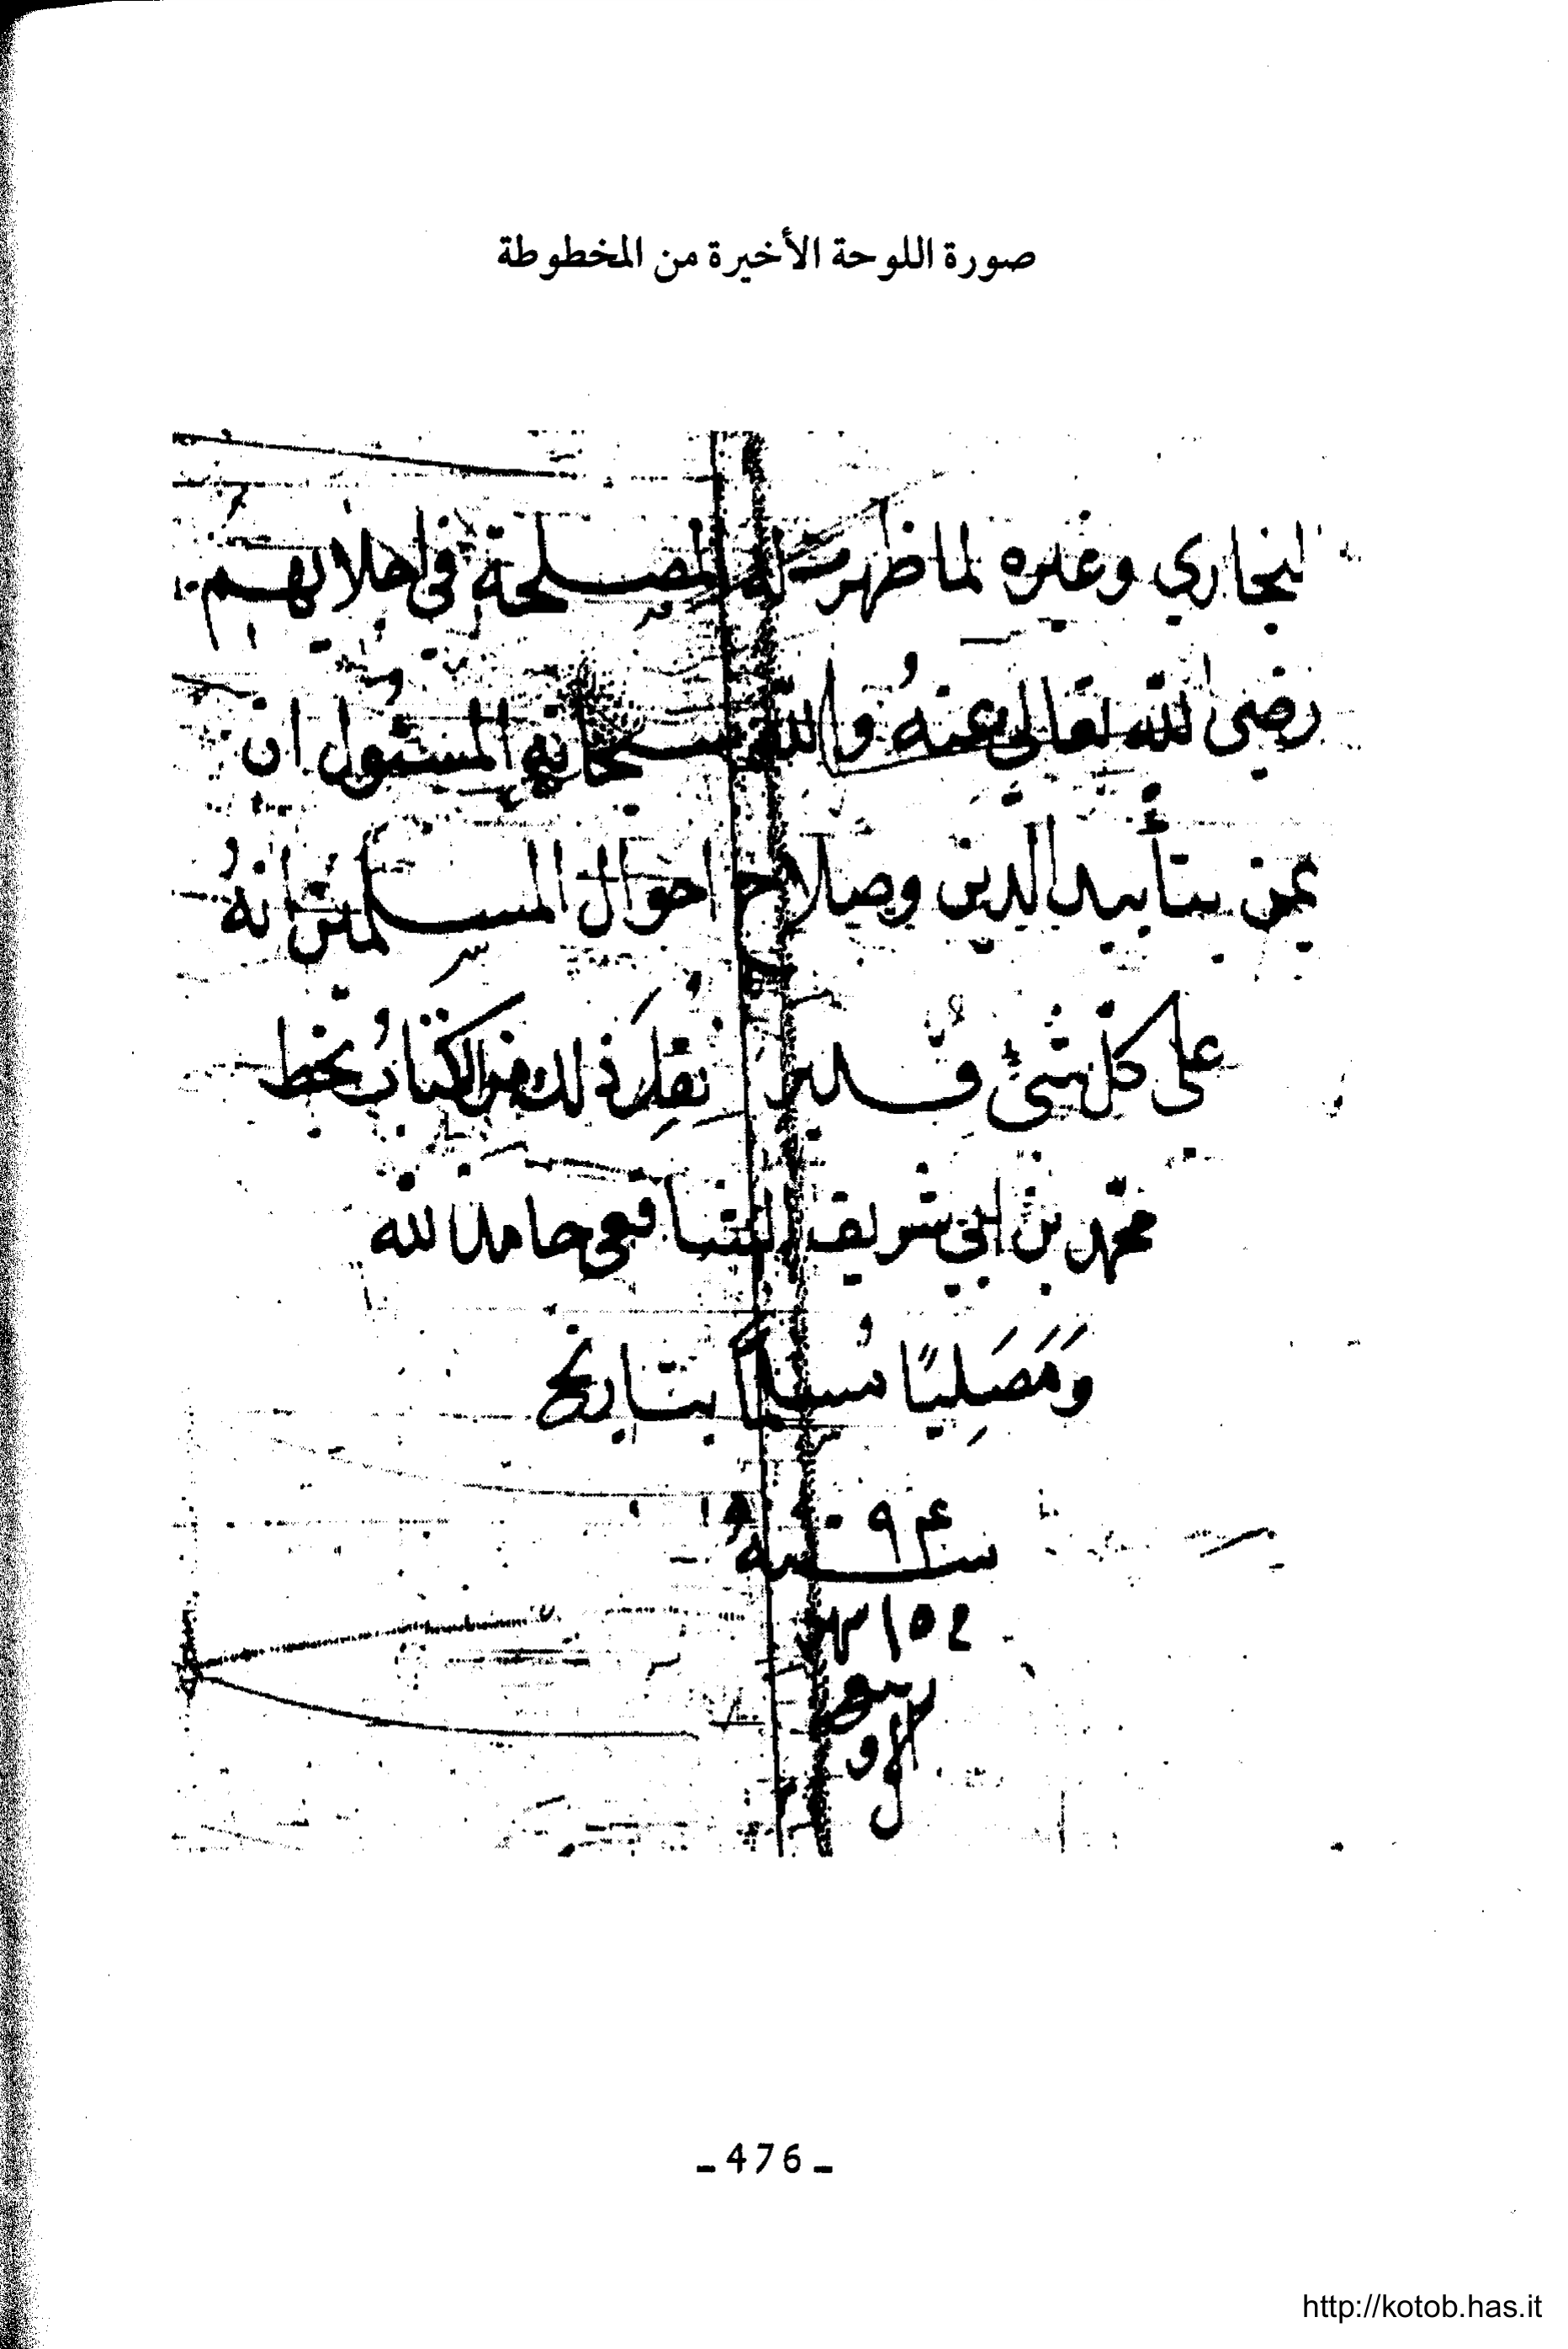 صورة اللوحة الأخيرة من المخطوطة
البخاري وغيره لما ظهرت له المصلحة في اجلايهم
رضى الله تعالى عنه والله سبحانه المسئول ان
يمن بتأييد الدين وصلاح احوال المسلمين انهُ
على كل شئ قدير نقل ذلك من الكتاب بخط
محمد بن ابي شريف الشافعي حامدا لله
وَمَصَلِيًا مُسلمًا بتاريخ
سنه
ربيع
الاول
-476-
http://kotob.has.it